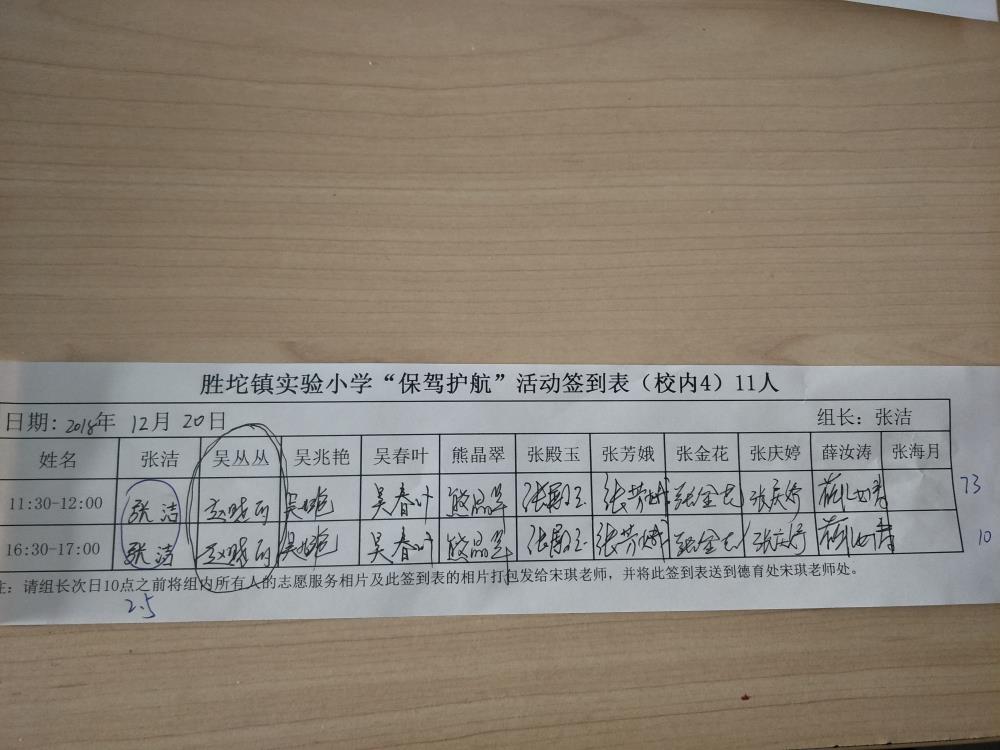 胜坨镇实验小学“保驾护航”活动签到表（校内4）11人
日期: 2018年 12月 20日 组长：张洁
姓名 张洁 吴丛丛 吴兆艳 吴春叶 熊晶翠 张殿玉 张芳娥 张金花 张庆婷 薛汝涛 张海月
11:30-12:00 张洁 赵晓丽 吴兆艳 吴春叶 熊晶翠 张殿玉 张芳娥 张金花 张庆婷 薛汝涛 73
16:30-17:00 张洁 赵晓丽 吴兆艳 吴春叶 熊晶翠 张殿玉 张芳娥 张金花 张庆婷 薛汝涛 10
注：请组长次日10点之前将组内所有人的志愿服务相片及此签到表的相片打包发给宋琪老师，并将此签到表送到德育处宋琪老师处。
2.5